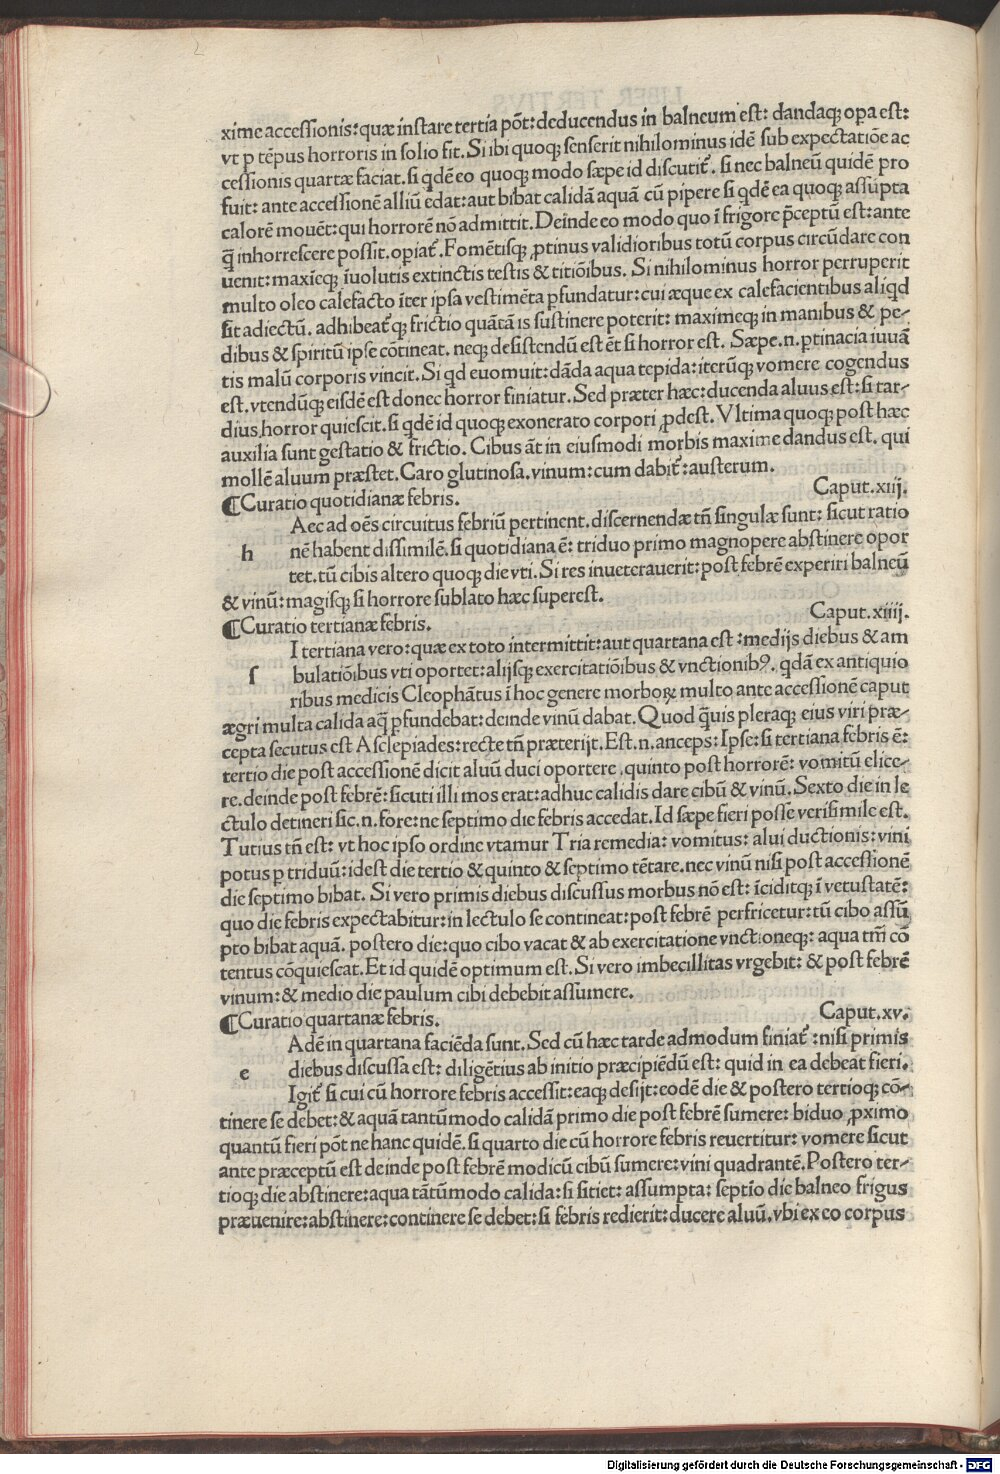 xime accessionis: quæ instare tertia põt: deducendus in balneum est: dandaqꝫ oꝑa est:
vt ꝑ tẽpus horroris in solio sit. Si ibi quoqꝫ senserit nihilominus idẽ sub expectatiõe ac
cessionis quartæ faciat. si qdẽ eo quoqꝫ modo sæpe id discutit᷑. si nec balneũ quidẽ pro
fuit: ante accessionẽ alliũ edat: aut bibat calidã aquã cũ pipere si qdẽ ea quoqꝫ assũpta
calorẽ mouẽt: qui horrorẽ nõ admittit. Deinde eo modo quo ĩ frigore p̃ceptũ est: ante
q̃ inhorrescere possit. oꝑiat᷑. Fomẽtisqꝫ ꝓtinus validioribus totũ corpus circũdare con
uenit: maxĩeqꝫ ĩuolutis extinctis testis & titiõibus. Si nihilominus horror perruperit
multo oleo calefacto ĩter ipsa vestimẽta ꝑfundatur: cui æque ex calefacientibus aliqd
sit adiectũ. adhibeat᷑qꝫ frictio quãtã is sustinere poterit: maximeqꝫ in manibus & pe-
dibus & spiritũ ipse cõtineat. neqꝫ desistendũ est ẽt si horror est. Sæpe .n. ꝑtinacia iuuã
tis malũ corporis vincit. Si qd euomuit: dãda aqua tepida: iterũqꝫ vomere cogendus
est. vtendũqꝫ eisdẽ est donec horror finiatur. Sed præter hæc: ducenda aluus est: si tar-
dius horror quiescit. si qdẽ id quoqꝫ exonerato corpori ꝓdest. Vltima quoqꝫ post hæc
auxilia sunt gestatio & frictio. Cibus ãt in eiusmodi morbis maxime dandus est. qui
mollẽ aluum præstet. Caro glutinosa. vinum: cum dabit᷑: austerum.
¶Curatio quotidianæ febris. Caput.xiij.
h Aec ad oẽs circuitus febriũ pertinent. discernendæ tñ singulæ sunt: sicut ratio
nẽ habent dissimilẽ. si quotidiana ẽ: triduo primo magnopere abstinere opor
tet. tũ cibis altero quoqꝫ die vti. Si res inueterauerit: post febrẽ experiri balneũ
& vinũ: magisqꝫ si horrore sublato hæc superest.
¶Curatio tertianæ febris. Caput.xiiij.
s I tertiana vero: quæ ex toto intermittit: aut quartana est: medijs diebus & am
bulatiõibus vti oportet: alijsqꝫ exercitatiõibus & vnctionibꝰ. qdã ex antiquio
ribus medicis Cleophãtus ĩ hoc genere morboꝝ multo ante accessionẽ caput
ægri multa calida aq̃ ꝑfundebat: deinde vinũ dabat. Quod q̃uis pleraqꝫ eius viri præ-
cepta secutus est Asclepiades: recte tñ præterijt. Est .n. anceps: Ipse: si tertiana febris ẽ:
tertio die post accessionẽ dicit aluũ duci oportere. quinto post horrorẽ: vomitũ elice-
re. deinde post febrẽ: sicuti illi mos erat: adhuc calidis dare cibũ & vinũ. Sexto die in le
ctulo detineri sic .n. fore: ne septimo die febris accedat. Id sæpe fieri posse verisimile est.
Tutius tñ est: vt hoc ipso ordine vtamur Tria remedia: vomitus: alui ductionis: vini
potus ꝑ triduũ: idest die tertio & quinto & septimo tẽtare. nec vinũ nisi post accessionẽ
die septimo bibat. Si vero primis diebus discussus morbus nõ est: ĩciditqꝫ ĩ vetustatẽ:
quo die febris expectabitur: in lectulo se contineat: post febrẽ perfricetur: tũ cibo assũ
pto bibat aquã. postero die: quo cibo vacat & ab exercitatione vnctioneqꝫ: aqua tm̃ cõ
tentus cõquiescat. Et id quidẽ optimum est. Si vero imbecillitas vrgebit: & post febrẽ
vinum: & medio die paulum cibi debebit assumere.
¶Curatio quartanæ febris. Caput.xv.
e Adẽ in quartana faciẽda sunt. Sed cũ hæc tarde admodum finiat᷑: nisi primis
diebus discussa est: diligẽtius ab initio præcipiẽdũ est: quid in ea debeat fieri.
Igit᷑ si cui cũ horrore febris accessit: eaqꝫ desijt: eodẽ die & postero tertioqꝫ cõ-
tinere se debet: & aquã tantũmodo calidã primo die post febrẽ sumere: biduo ꝓximo
quantũ fieri põt ne hanc quidẽ. si quarto die cũ horrore febris reuertitur: vomere sicut
ante præceptũ est deinde post febrẽ modicũ cibũ sumere: vini quadrantẽ. Postero ter-
tioqꝫ die abstinere: aqua tãtũmodo calida: si sitiet: assumpta: septĩo die balneo frigus
præuenire: abstinere: continere se debet: si febris redierit: ducere aluũ. vbi ex eo corpus
Digitalisierung gefördert durch die Deutsche Forschungsgemeinschaft - DFG